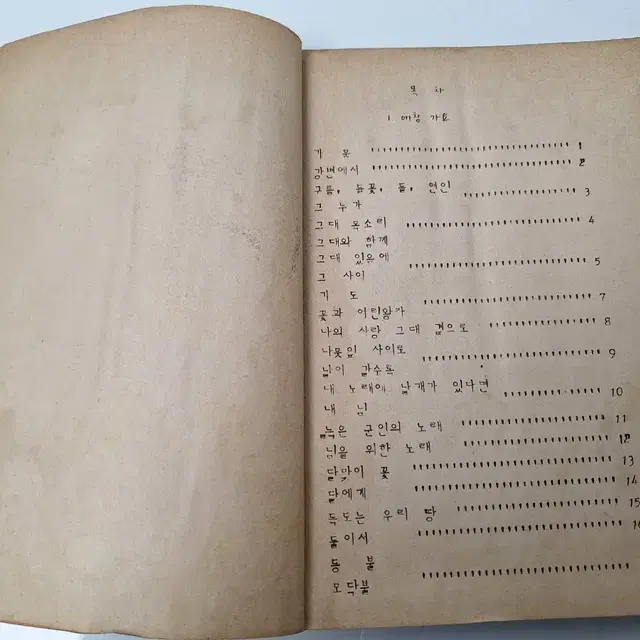 목 차
I 애창 가요
1
강변에서 2
구름, 들꽃, 돌, 연인 3
그 누가
그대 목소리 4
그대와 함께
그대 있음에 5
그 사이
기 도 7
꽃과 어린왕자
나의 사랑 그대 곁으로 8
나뭇잎 사이로 9
날이 갈수록
내 노래에 날개가 있다면 10
내 님
늙은 군인의 노래 11
님을 위한 노래 12
달맞이 꽃 13
달에게 14
독도는 우리 땅 15
둘이서 16
등 불
모닥불